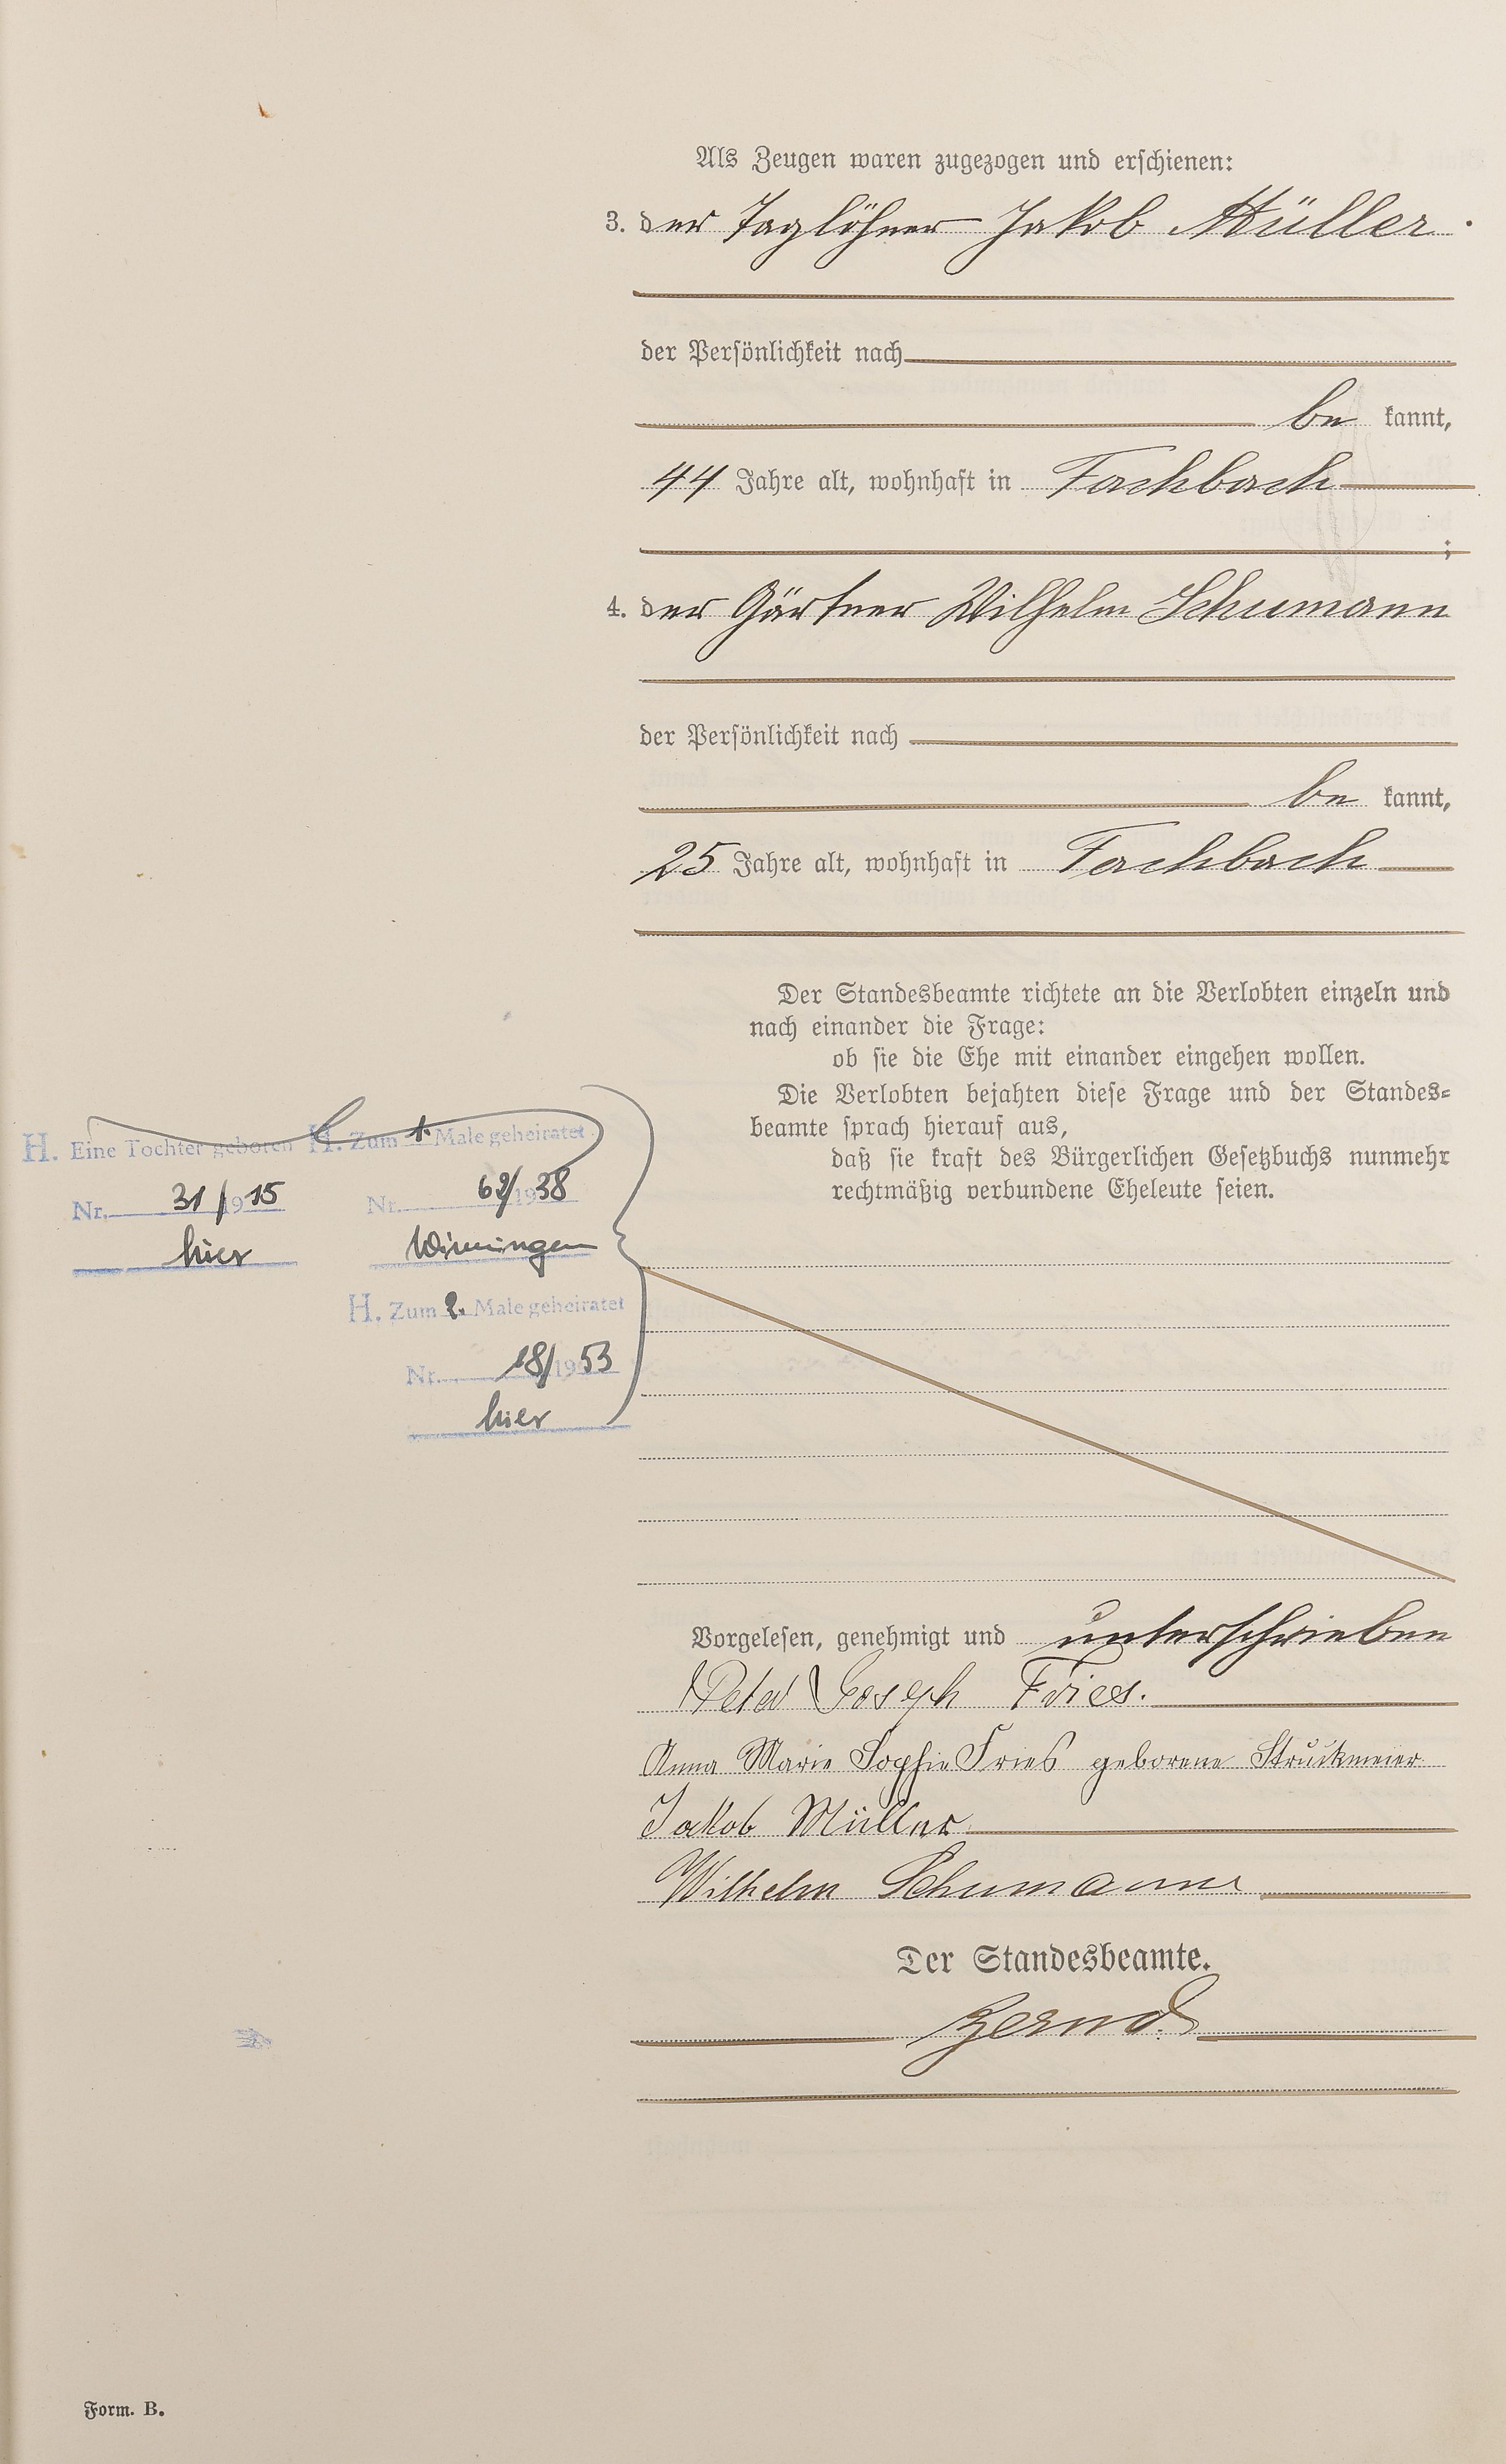 Als Zeugen waren zugezogen und erschienen:
3. der Taglöhner Jakob Müller
der Persönlichkeit nach
be kannt,
44 Jahre alt, wohnhaft in Fachbach
;
4. der Gärtner Wilhelm Schumann
der Persönlichkeit nach
be kannt,
25 Jahre alt, wohnhaft in Fachbach
Der Standesbeamte richtete an die Verlobten einzeln und
nach einander die Frage:
ob sie die Ehe mit einander eingehen wollen.
Die Verlobten bejahten diese Frage und der Standes-
beamte sprach hierauf aus,
daß sie kraft des Bürgerlichen Gesetzbuchs nunmehr
rechtmäßig verbundene Eheleute seien.
H. Eine Tochter geboren
Nr. 31/1915
hier
H. Zum 1. Male geheiratet
Nr. 62/1938
Winningen
H. Zum 2. Male geheiratet
Nr. 18/1953
hier
Vorgelesen, genehmigt und unterschrieben
Peter Joseph Fries.
Anna Marie Sophie Fries geborene Struckmeier
Jakob Müller
Wilhelm Schumann
Der Standesbeamte.
Form. B.